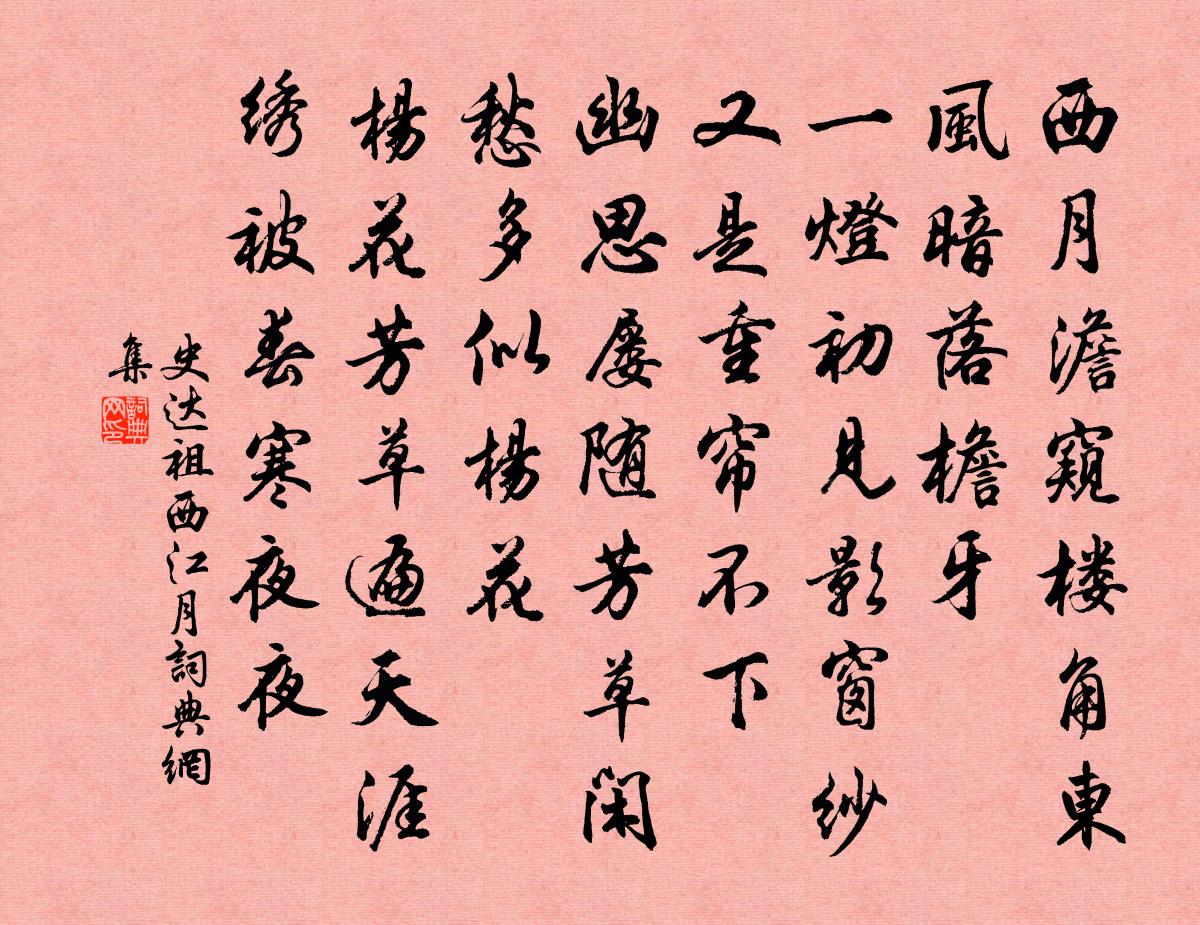 西月澹窺楼角東
風暗落檐牙
一燈初見影窗紗
又是重帘不下
幽思屡随芳草闲
愁多似楊花
楊花芳草遍天涯
绣被春寒夜夜
史达祖西江月詞典網
集
詞典
网印